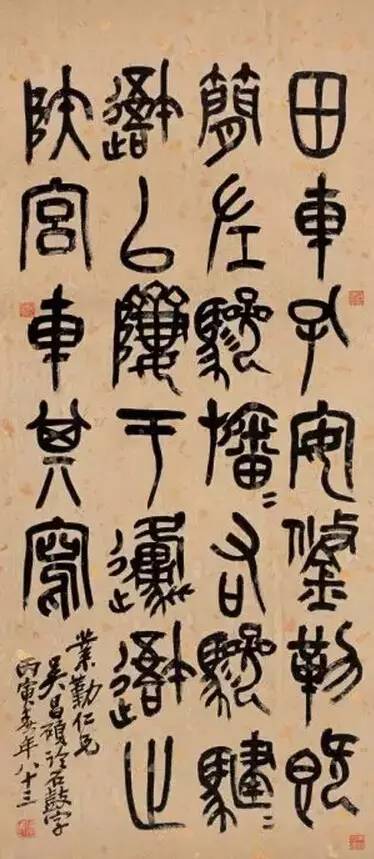 田車孔安鋚勒既
簡左驂旛〻右驂騝〻
吾以隮于邍吾止
陝宮車其寫
業勤仁兄
吳昌碩臨石鼓字
丙寅春年八十三